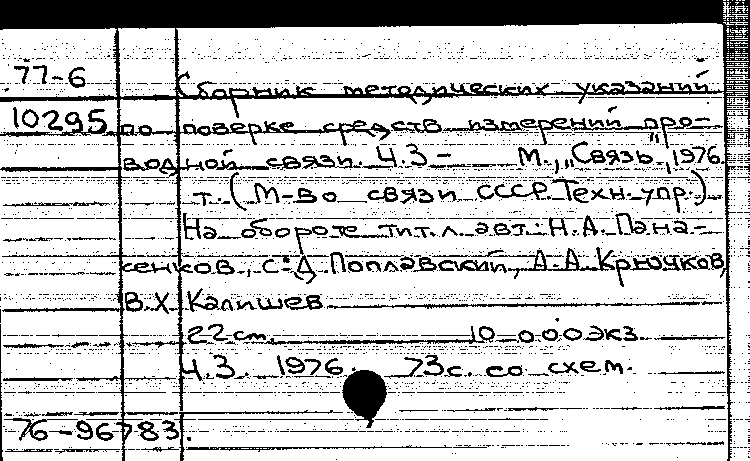 77-6 Сборник методических указаний
10295 по поверке средств измерений про-
водной связи. Ч.3 - М., „Связь", 1976.
т. (М-во связи СССР. Техн. упр.)
На обороте тит. л. авт.: Н.А. Пана-
сенков, С.Д. Поплавский, А.А. Крючков,
В.Х. Калишев
22 см. 10 000 экз.
Ч.3. 1976. 73 с. со схем.
76-96783.